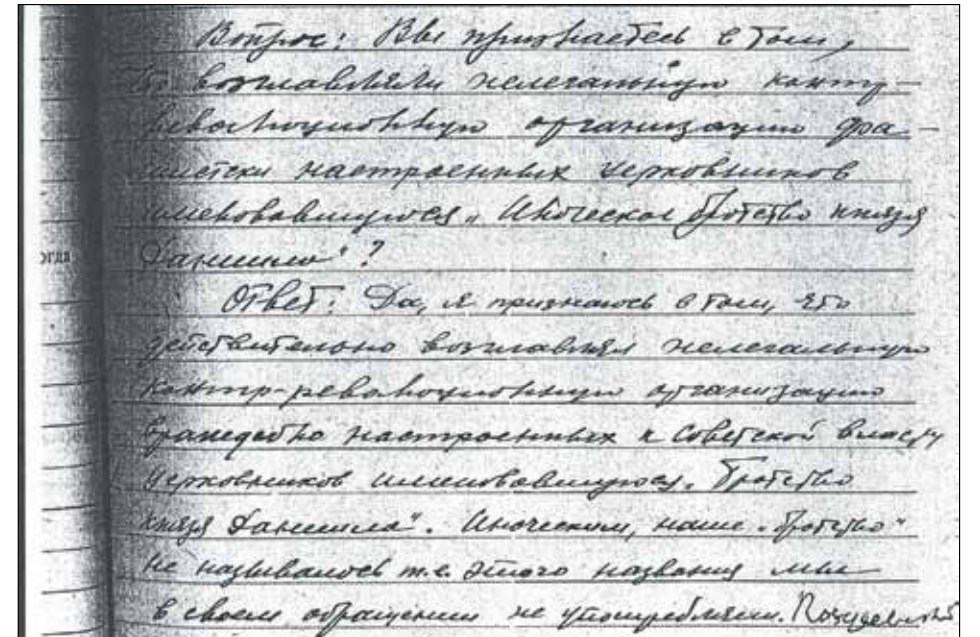 Вопрос: Вы признаетесь в том,
что возглавляли нелегальную контр-
революционную организацию фа-
шистски настроенных церковников
именовавшуюся „Иноческое братство князя
Даниила"?
огда
Ответ: Да, я признаюсь в том, что
действительно возглавлял нелегальную
контр-революционную организацию
враждебно настроенных к Советской власти
церковников именовавшуюся „Братство
князя Даниила". Иноческим, наше „братство"
не называлось т.е. этого названия мы
в своем обращении не употребляли.